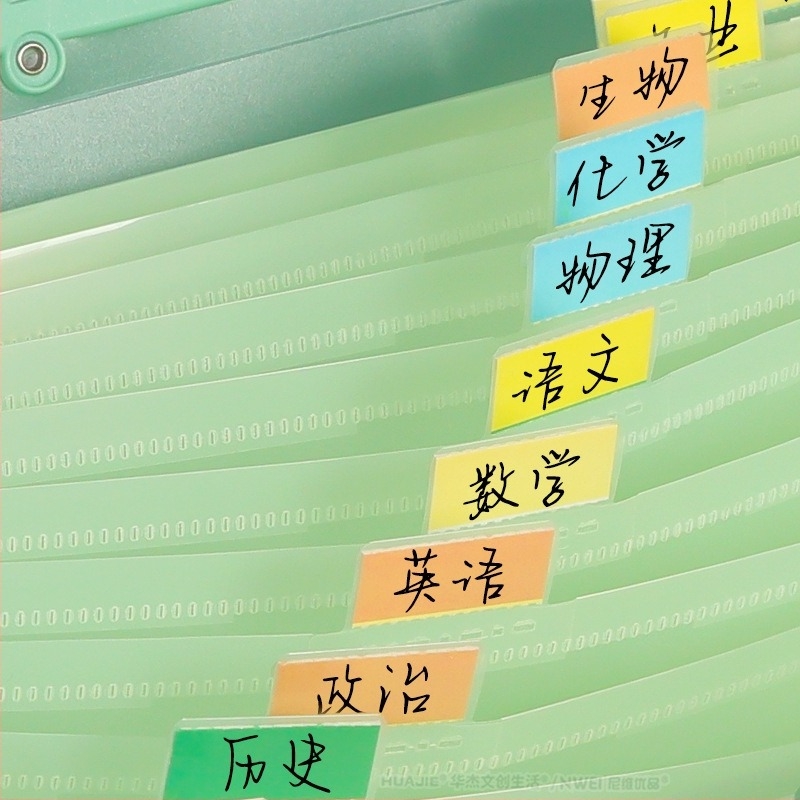 生物
化学
物理
语文
数学
英语
政治
历史
HUAJIE® 华杰文创生活®/NWEI 尼维优品®